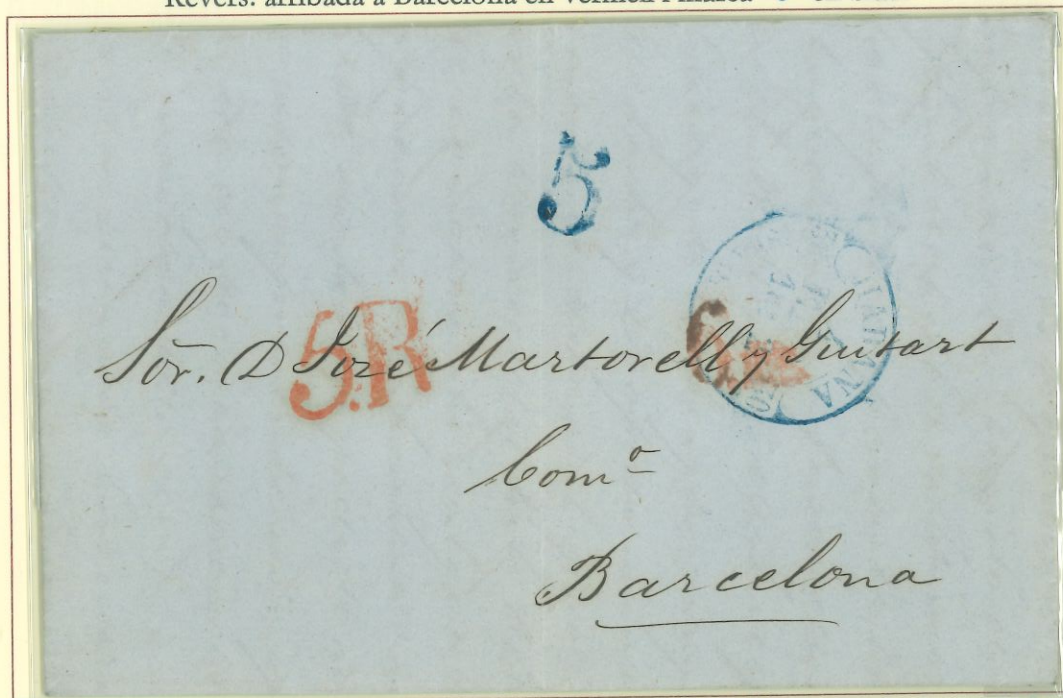 Revers: arribada a Barcelona en vermell i marca
5
HABANA
5.R
Sor. D José Martorell y Guitart
Como
Barcelona